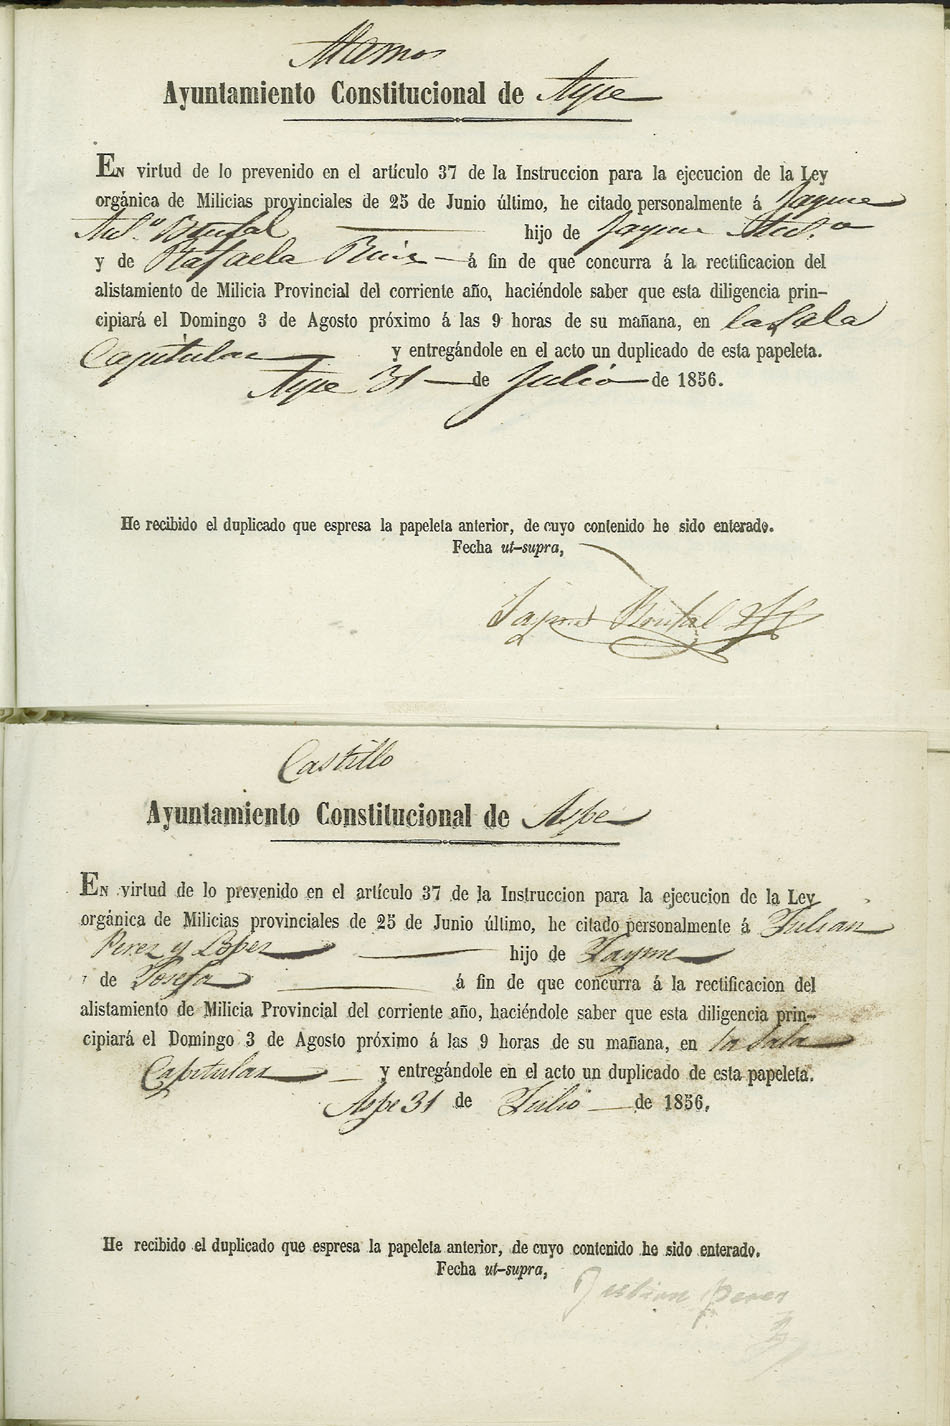 Alamos
Ayuntamiento Constitucional de Aspe
EN virtud de lo prevenido en el artículo 37 de la Instruccion para la ejecucion de la Ley
orgánica de Milicias provinciales de 25 de Junio último, he citado personalmente á Jayme
Ant.º Brufal hijo de Jayme Ant.º
y de Rafaela Ruiz á fin de que concurra á la rectificacion del
alistamiento de Milicia Provincial del corriente año, haciéndole saber que esta diligencia prin-
cipiará el Domingo 3 de Agosto próximo á las 9 horas de su mañana, en la Sala
Capitular y entregándole en el acto un duplicado de esta papeleta.
Aspe 31 de Julio de 1856.
He recibido el duplicado que espresa la papeleta anterior, de cuyo contenido he sido enterado.
Fecha ut-supra,
Jayme Brufal
Castillo
Ayuntamiento Constitucional de Aspe
EN virtud de lo prevenido en el artículo 37 de la Instruccion para la ejecucion de la Ley
orgánica de Milicias provinciales de 25 de Junio último, he citado personalmente á Julian
Perez y Lopez hijo de Jayme
de Josefa á fin de que concurra á la rectificacion del
alistamiento de Milicia Provincial del corriente año, haciéndole saber que esta diligencia prin-
cipiará el Domingo 3 de Agosto próximo á las 9 horas de su mañana, en la Sala
Capitular y entregándole en el acto un duplicado de esta papeleta.
Aspe 31 de Julio de 1856.
He recibido el duplicado que espresa la papeleta anterior, de cuyo contenido he sido enterado.
Fecha ut-supra,
Julian perez